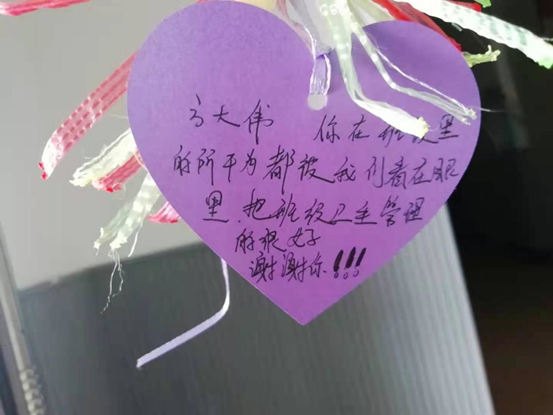 方大伟 你在班级里
的所干为都被我们看在眼
里.把班级卫生管理
的很好
谢谢你!!!